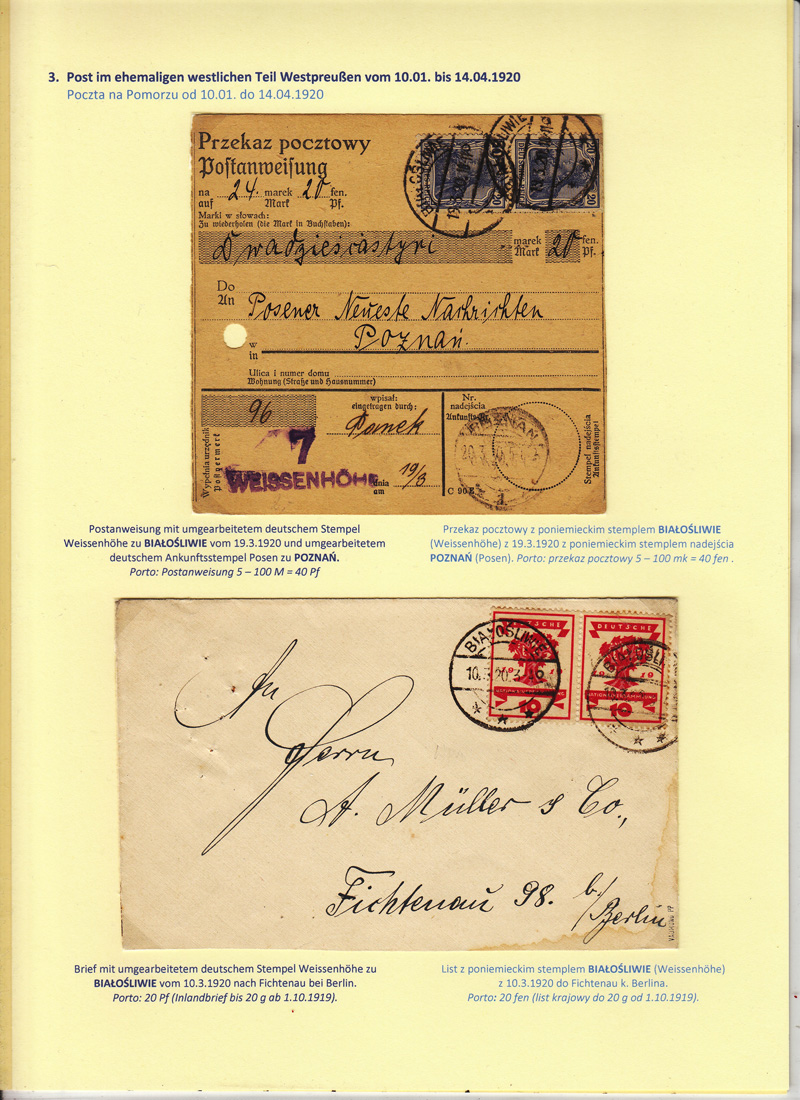 3. Post im ehemaligen westlichen Teil Westpreußen vom 10.01. bis 14.04.1920
Poczta na Pomorzu od 10.01. do 14.04.1920
Przekaz pocztowy
Postanweisung
na 24. marek 20 fen.
auf Mark Pf.
Marki w słowach:
Zu wiederholen (die Mark in Buchstaben):
Dwadzieściastyri marek 20 fen.
Mark Pf.
Do
An Posener Neueste Nachrichten
w Poznań.
in
Ulica i numer domu
Wohnung (Straße und Hausnummer)
96
wpisał:
eingetragen durch:
Panek
Nr.
nadejścia
Ankunfts-Nr.
Wypełnia urzędnik
Postgermerk
7
WEISSENHÖHE
dnia 19/3
am
C 90
POZNAŃ
Stempel nadejścia
Ankunftsstempel
BIAŁOŚLIWIE
20
20
Postanweisung mit umgearbeitetem deutschem Stempel
Weissenhöhe zu BIAŁOŚLIWIE vom 19.3.1920 und umgearbeitetem
deutschem Ankunftsstempel Posen zu POZNAŃ.
Porto: Postanweisung 5 – 100 M = 40 Pf
Przekaz pocztowy z poniemieckim stemplem BIAŁOŚLIWIE
(Weissenhöhe) z 19.3.1920 z poniemieckim stemplem nadejścia
POZNAŃ (Posen). Porto: przekaz pocztowy 5 – 100 mk = 40 fen .
BIAŁOŚLIWIE
10.3.20.3-16
DEUTSCHE
NATIONALVERSAMMLUNG
10
DEUTSCHE
1919
NATIONALVERSAMMLUNG
10
An
Herrn
A. Müller & Co.,
Fichtenau 98. b/
Berlin
Brief mit umgearbeitetem deutschem Stempel Weissenhöhe zu
BIAŁOŚLIWIE vom 10.3.1920 nach Fichtenau bei Berlin.
Porto: 20 Pf (Inlandbrief bis 20 g ab 1.10.1919).
List z poniemieckim stemplem BIAŁOŚLIWIE (Weissenhöhe)
z 10.3.1920 do Fichtenau k. Berlina.
Porto: 20 fen (list krajowy do 20 g od 1.10.1919).